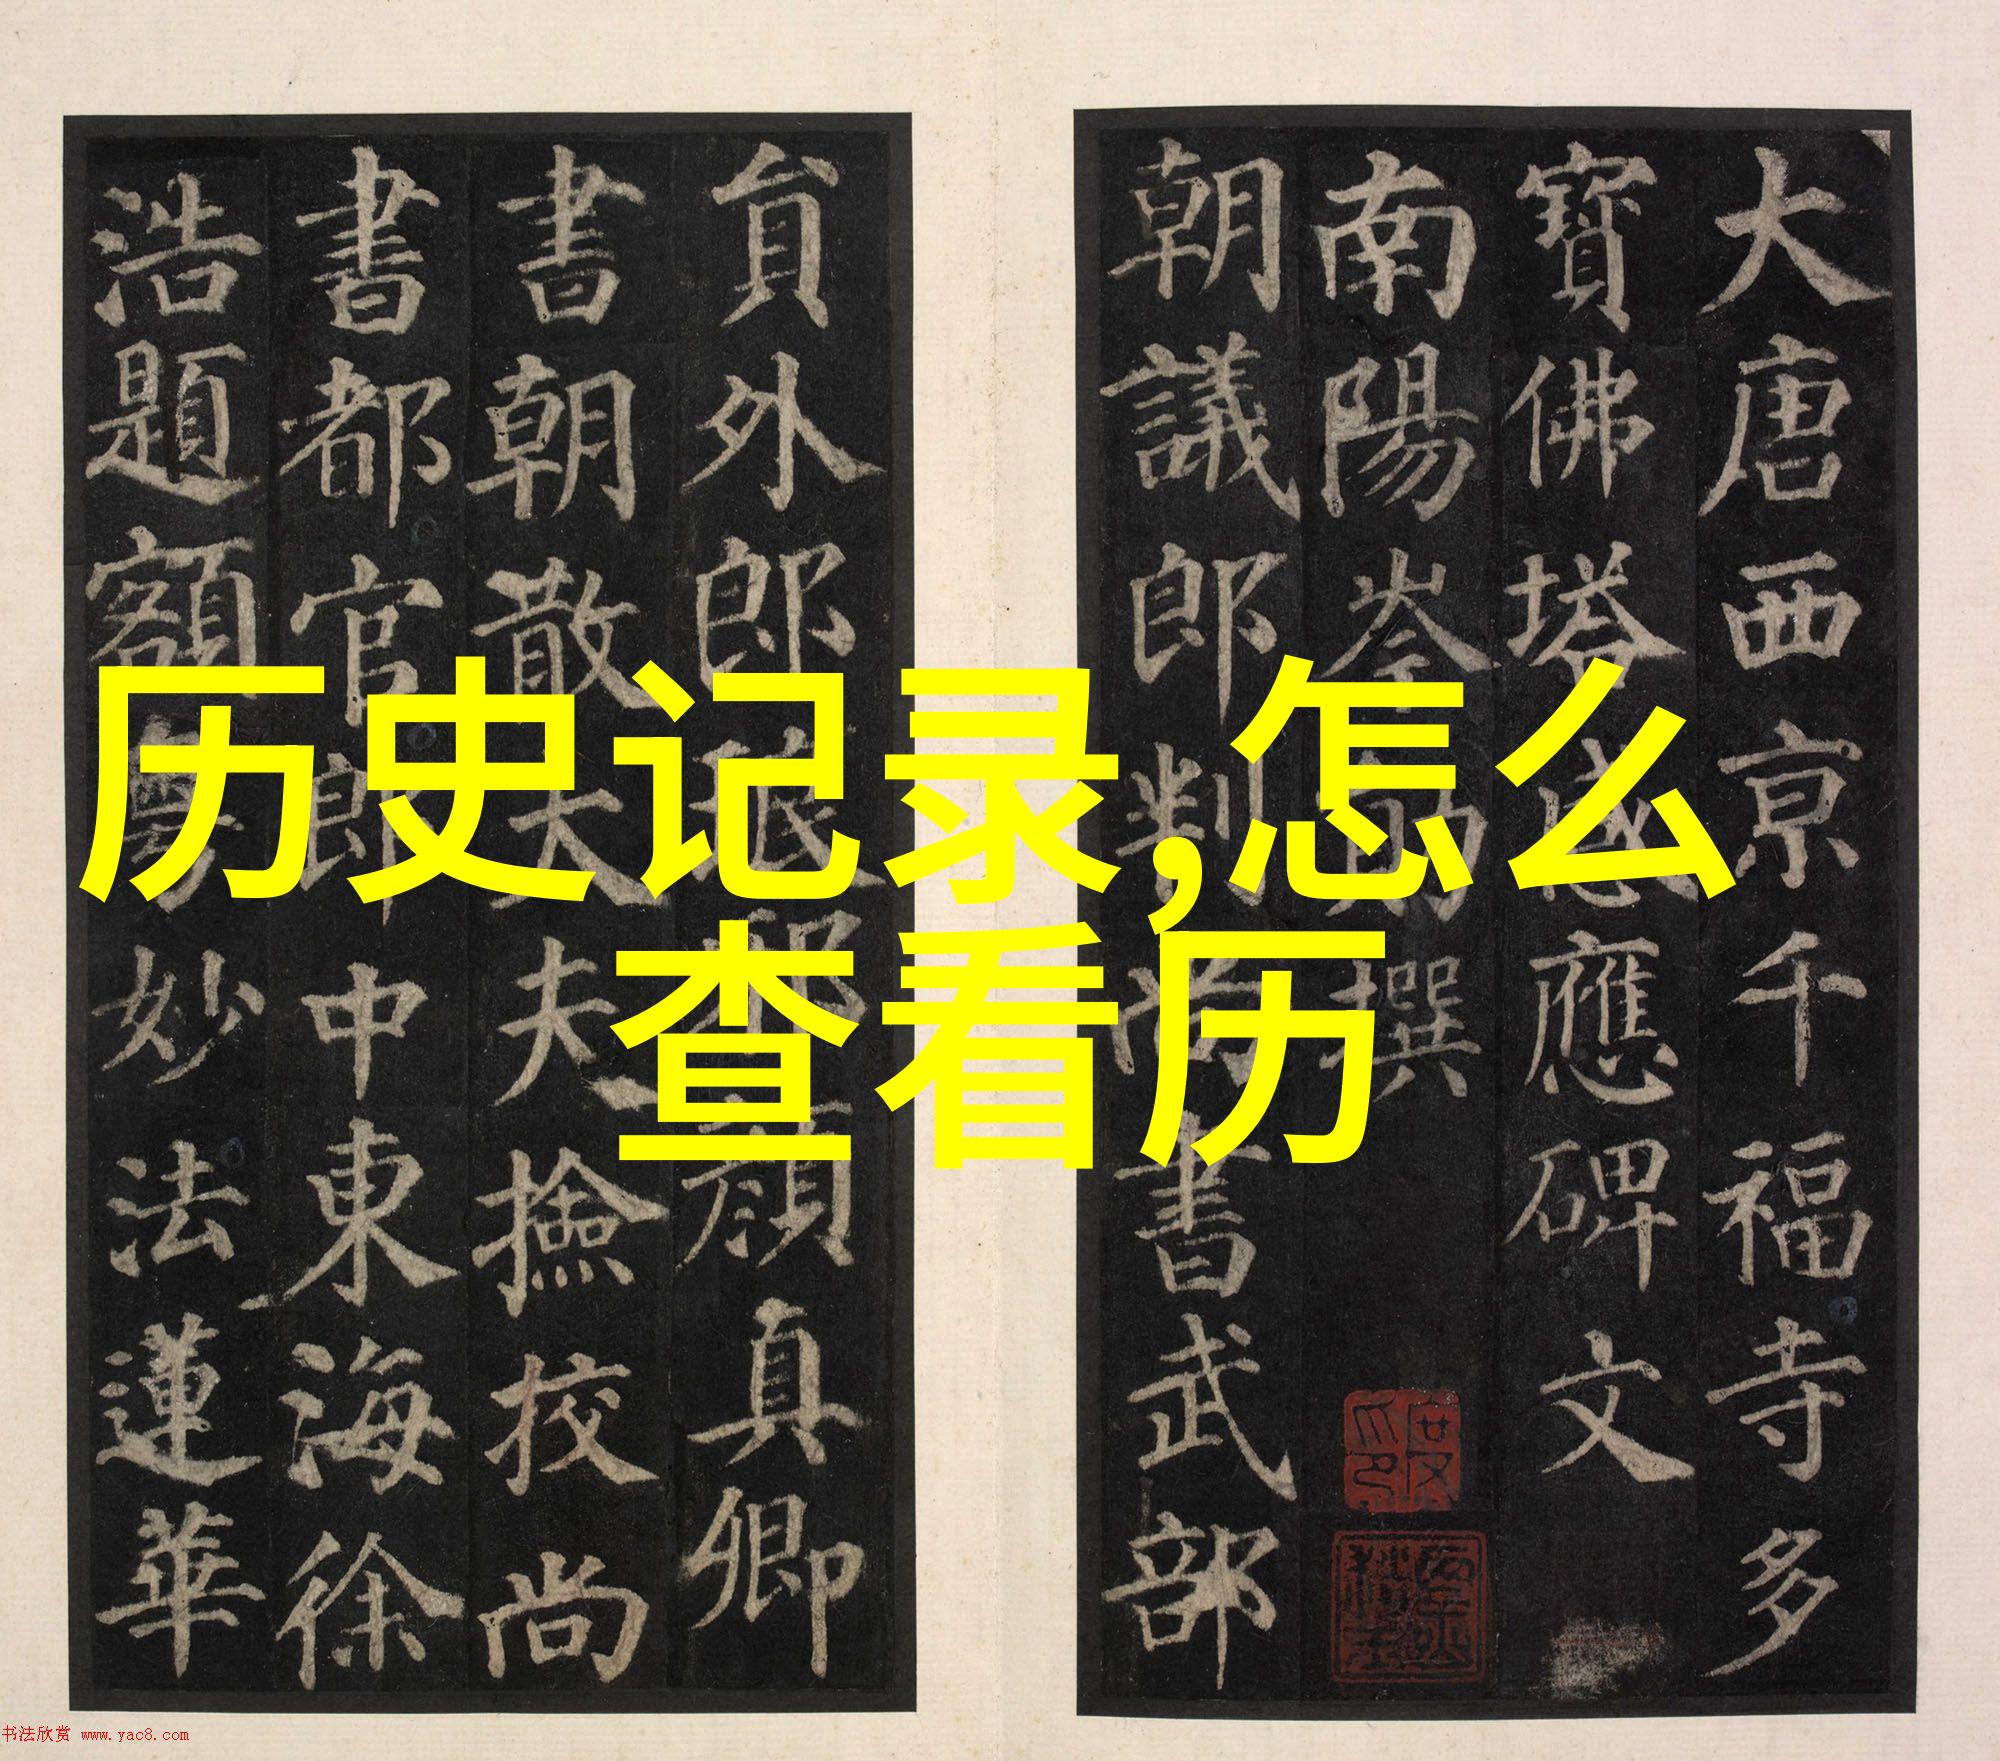 历史记录,怎么
查看历
大唐西亰千福寺多
寶佛塔感應碑文
南陽岑勛撰
朝議郎判尚書武部
貟外郎琅邪顏真卿
書朝散大夫撿挍尚
書都官郎中東海徐
浩題額粵妙法蓮華
书法欣赏 www.yac8.com